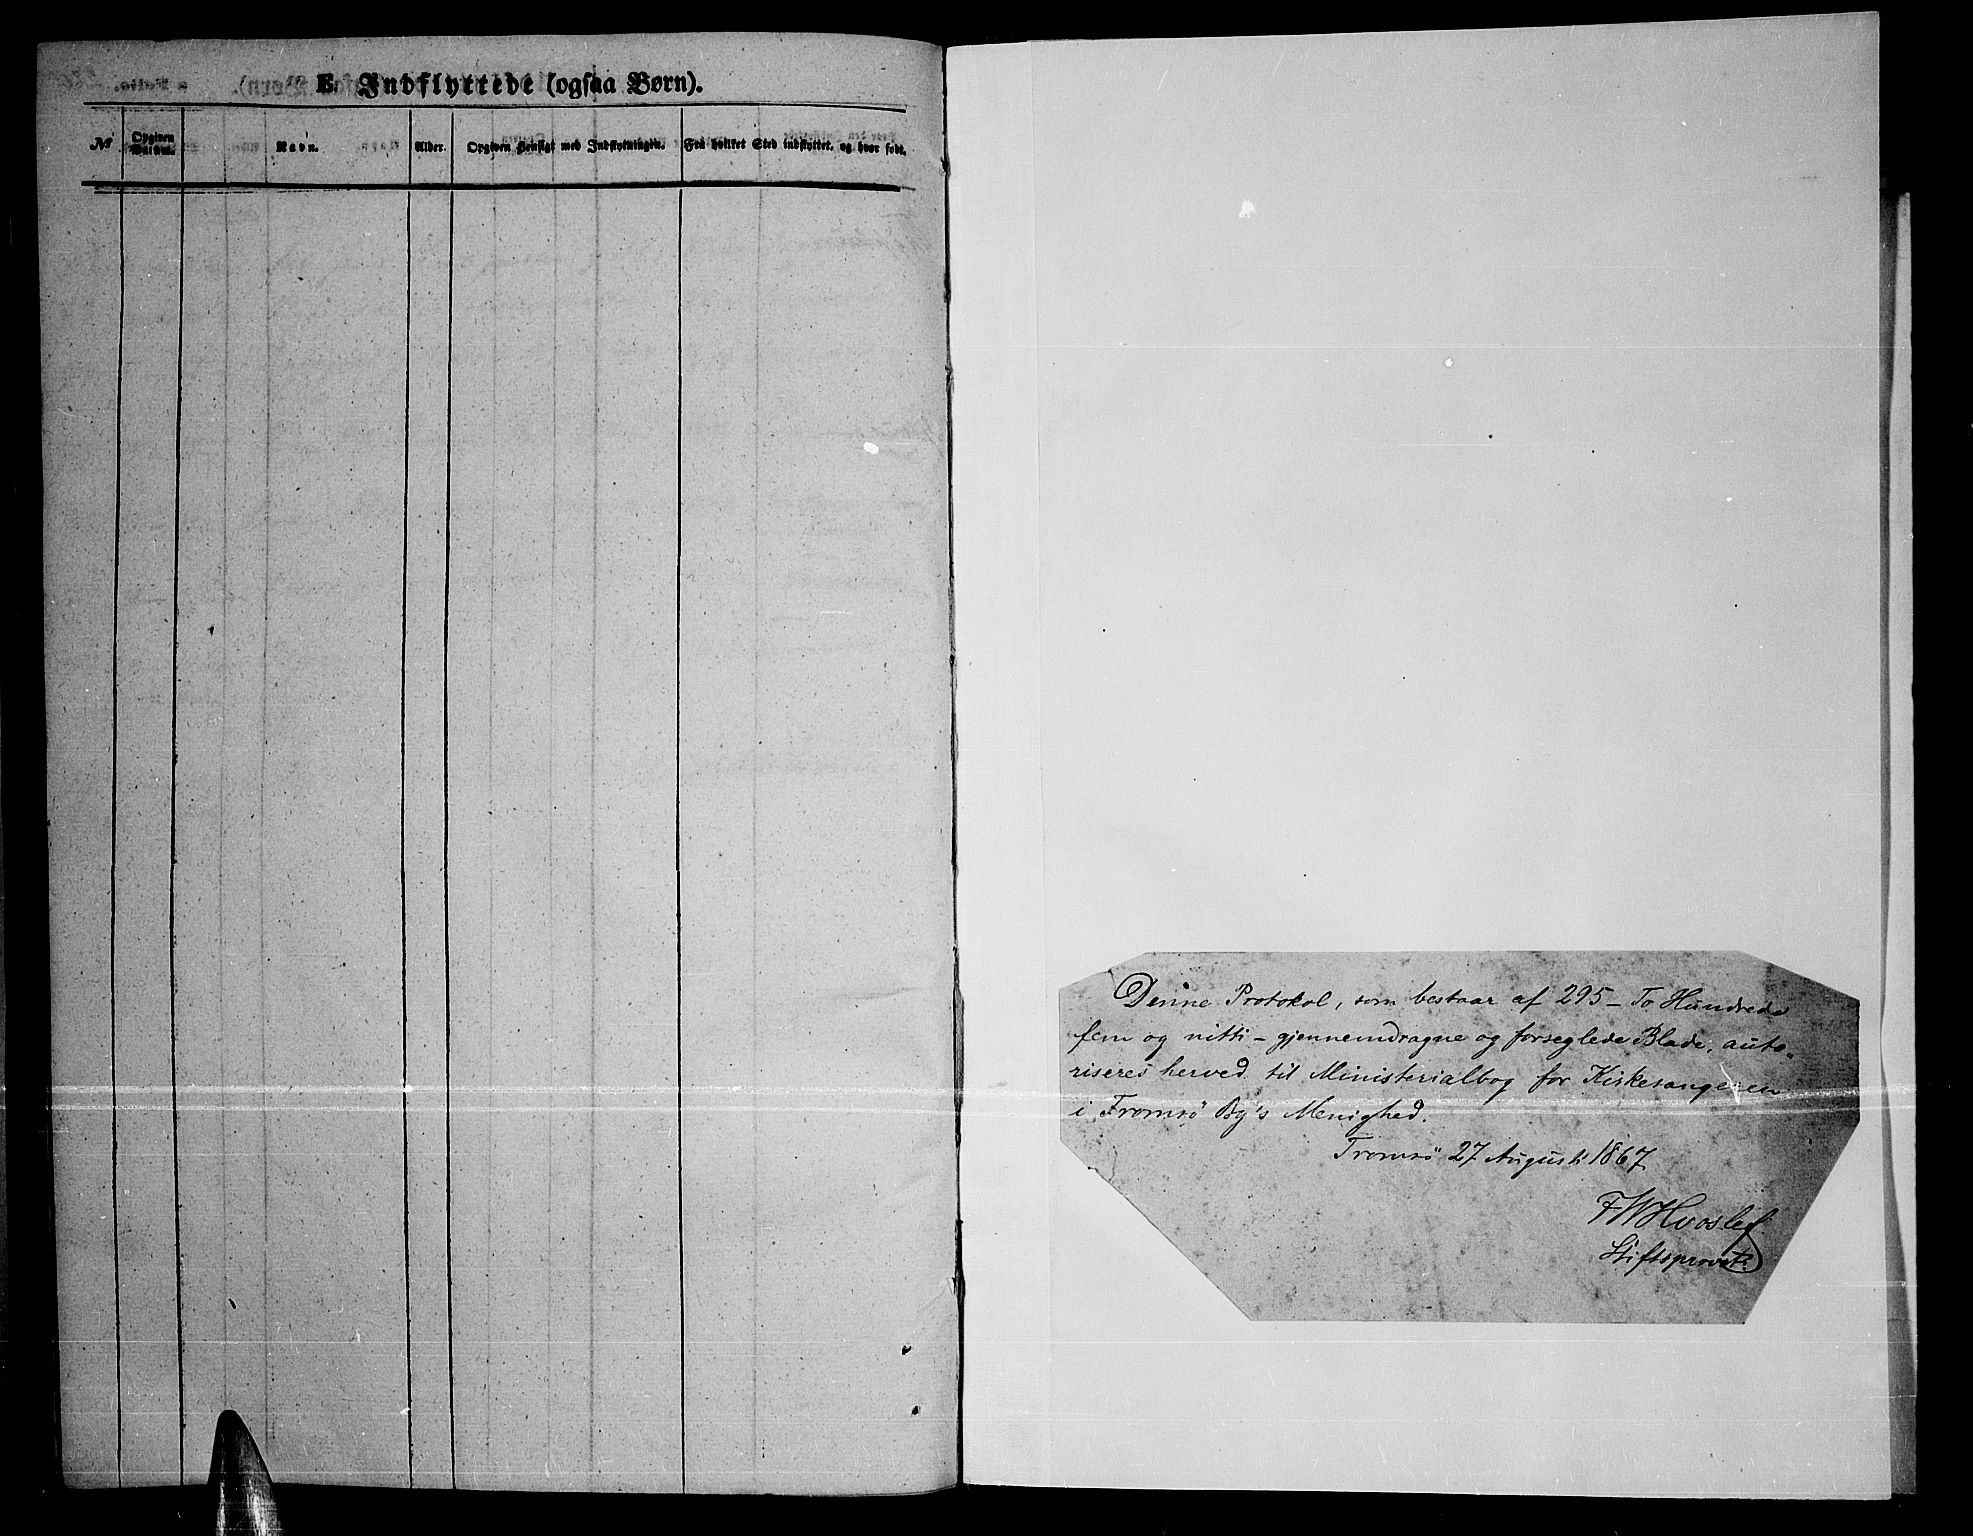 E. Indflyttede (ogsaa Børn).
No Opgiven Navn. Alder. Opgiven Hensigt med Indflytningen. Fra hvilket Sted indflyttet, og hvor født.
Denne Protokol, som bestaar af 295 – To Hundrede
fem og nitti – gjennemdragne og forseglede Blade, auto-
riseres herved til Ministerialbog for Kirkesangeren
i Tromsö By's Menighed.
Tromsö 27 August 1867
FWHvoslef
Stiftsprovst.